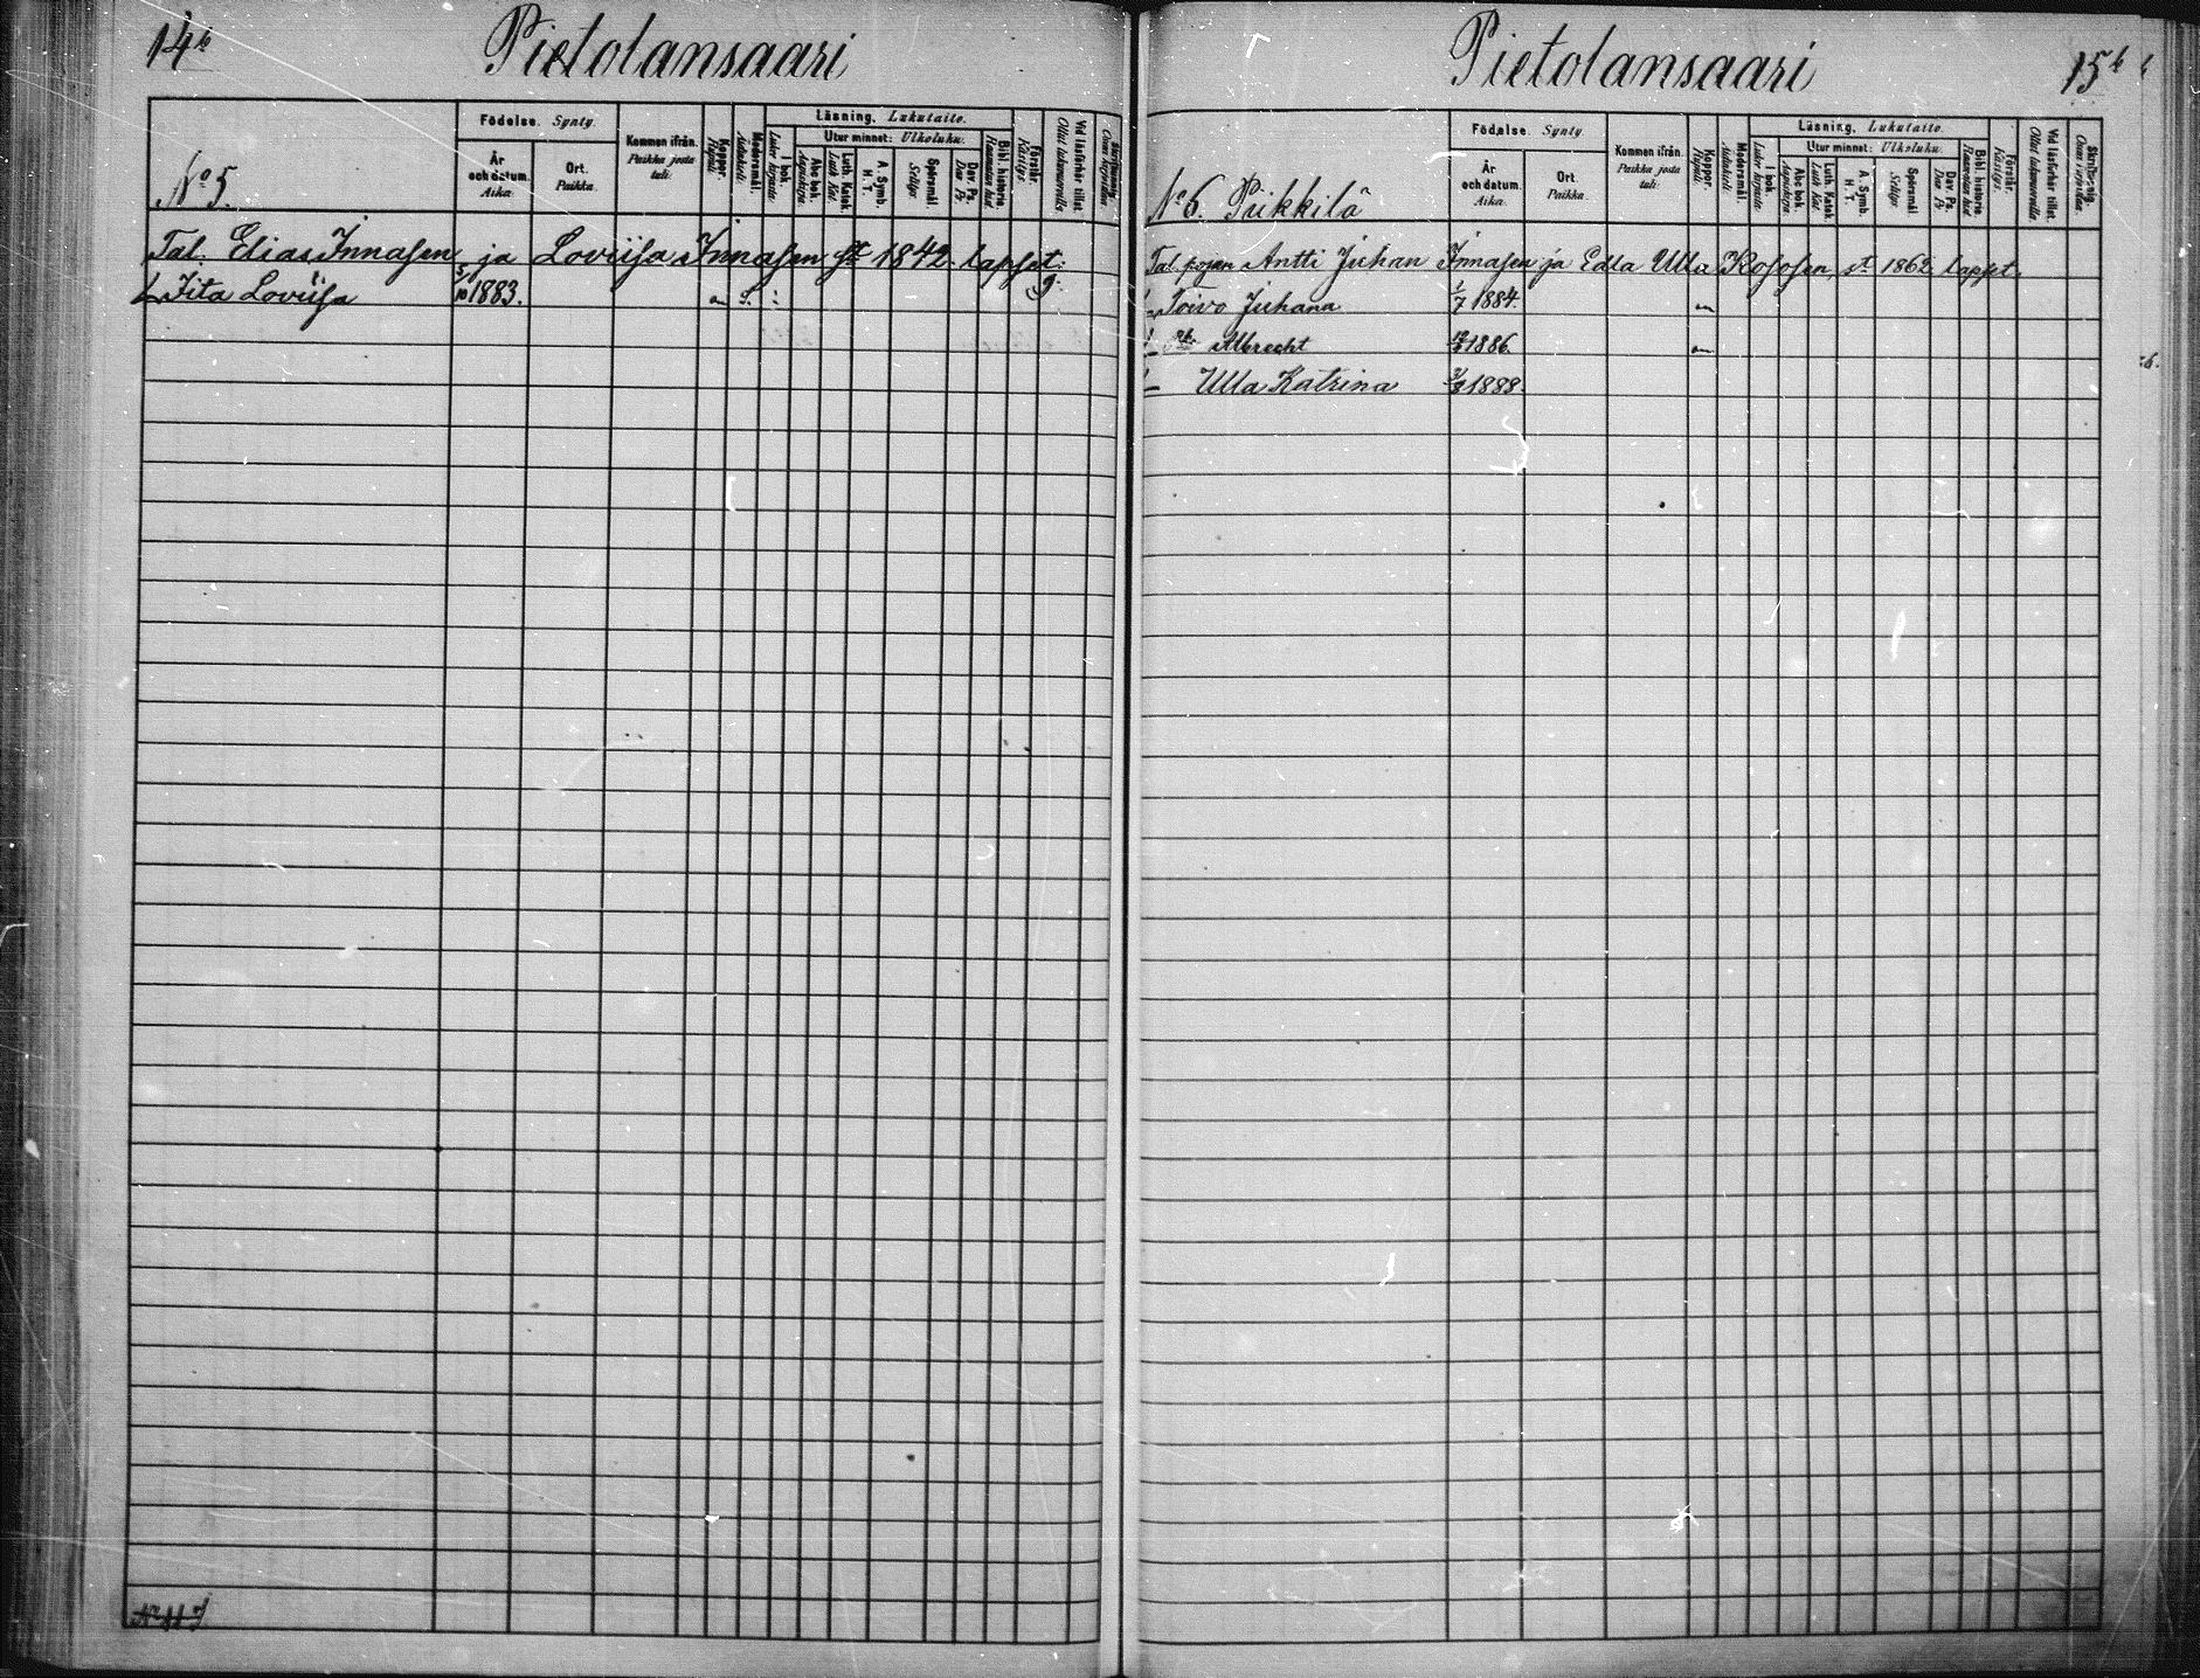 14b
Pietolansaari
No 5.
Födelse. Synty.
År och datum. Aika.
Ort. Paikka.
Kommen ifrån. Paikka josta tuli.
Koppor. Rupuli.
Modersmål. Äidinkieli.
Läsning. Lukutaito.
I bok. Lukee kirjasta
Utur minnet: Ulkoluku.
Abc bok. Aapiskirja.
Luth. Katek. Luth. Kat.
A. Symb. H. T.
Spörsmål. Selitys
Dav. Ps. Dav. Ps.
Bibl. historia. Raamatun hist.
Förstår. Käsitys.
Vid läsförhör tillst. Ollut lukuvuorolla
Skrifkunnig. Osaa kirjoittaa.
Tal. Elias Innasen ja Loviisa Innasen st. 1842 lapset:
Iita Loviisa 5/10 1883. S. : g.
Pietolansaari
15b
No 6. Piikkilä
Födelse. Synty.
År och datum. Aika.
Ort. Paikka.
Kommen ifrån. Paikka josta tuli.
Koppor. Rupuli.
Modersmål. Äidinkieli.
Läsning. Lukutaito.
I bok. Lukee kirjasta
Utur minnet: Ulkoluku.
Abc bok. Aapiskirja.
Luth. Katek. Luth. Kat.
A. Symb. H. T.
Spörsmål Selitys
Dav. Ps. Dav. Ps.
Bibl. historia. Raamatun hist
Förstår. Käsitys.
Vid läsförhör tillst. Ollut lukuvuorolla
Skrifkunnig. Osaa kirjoittaa.
Tal. pojan Antti Juhan Innasen ja Edla Ulla Kososen, st. 1862 lapset.
Toivo Juhana 1/7 1884.
Albrecht 1886.
Ulla Katrina 1888.